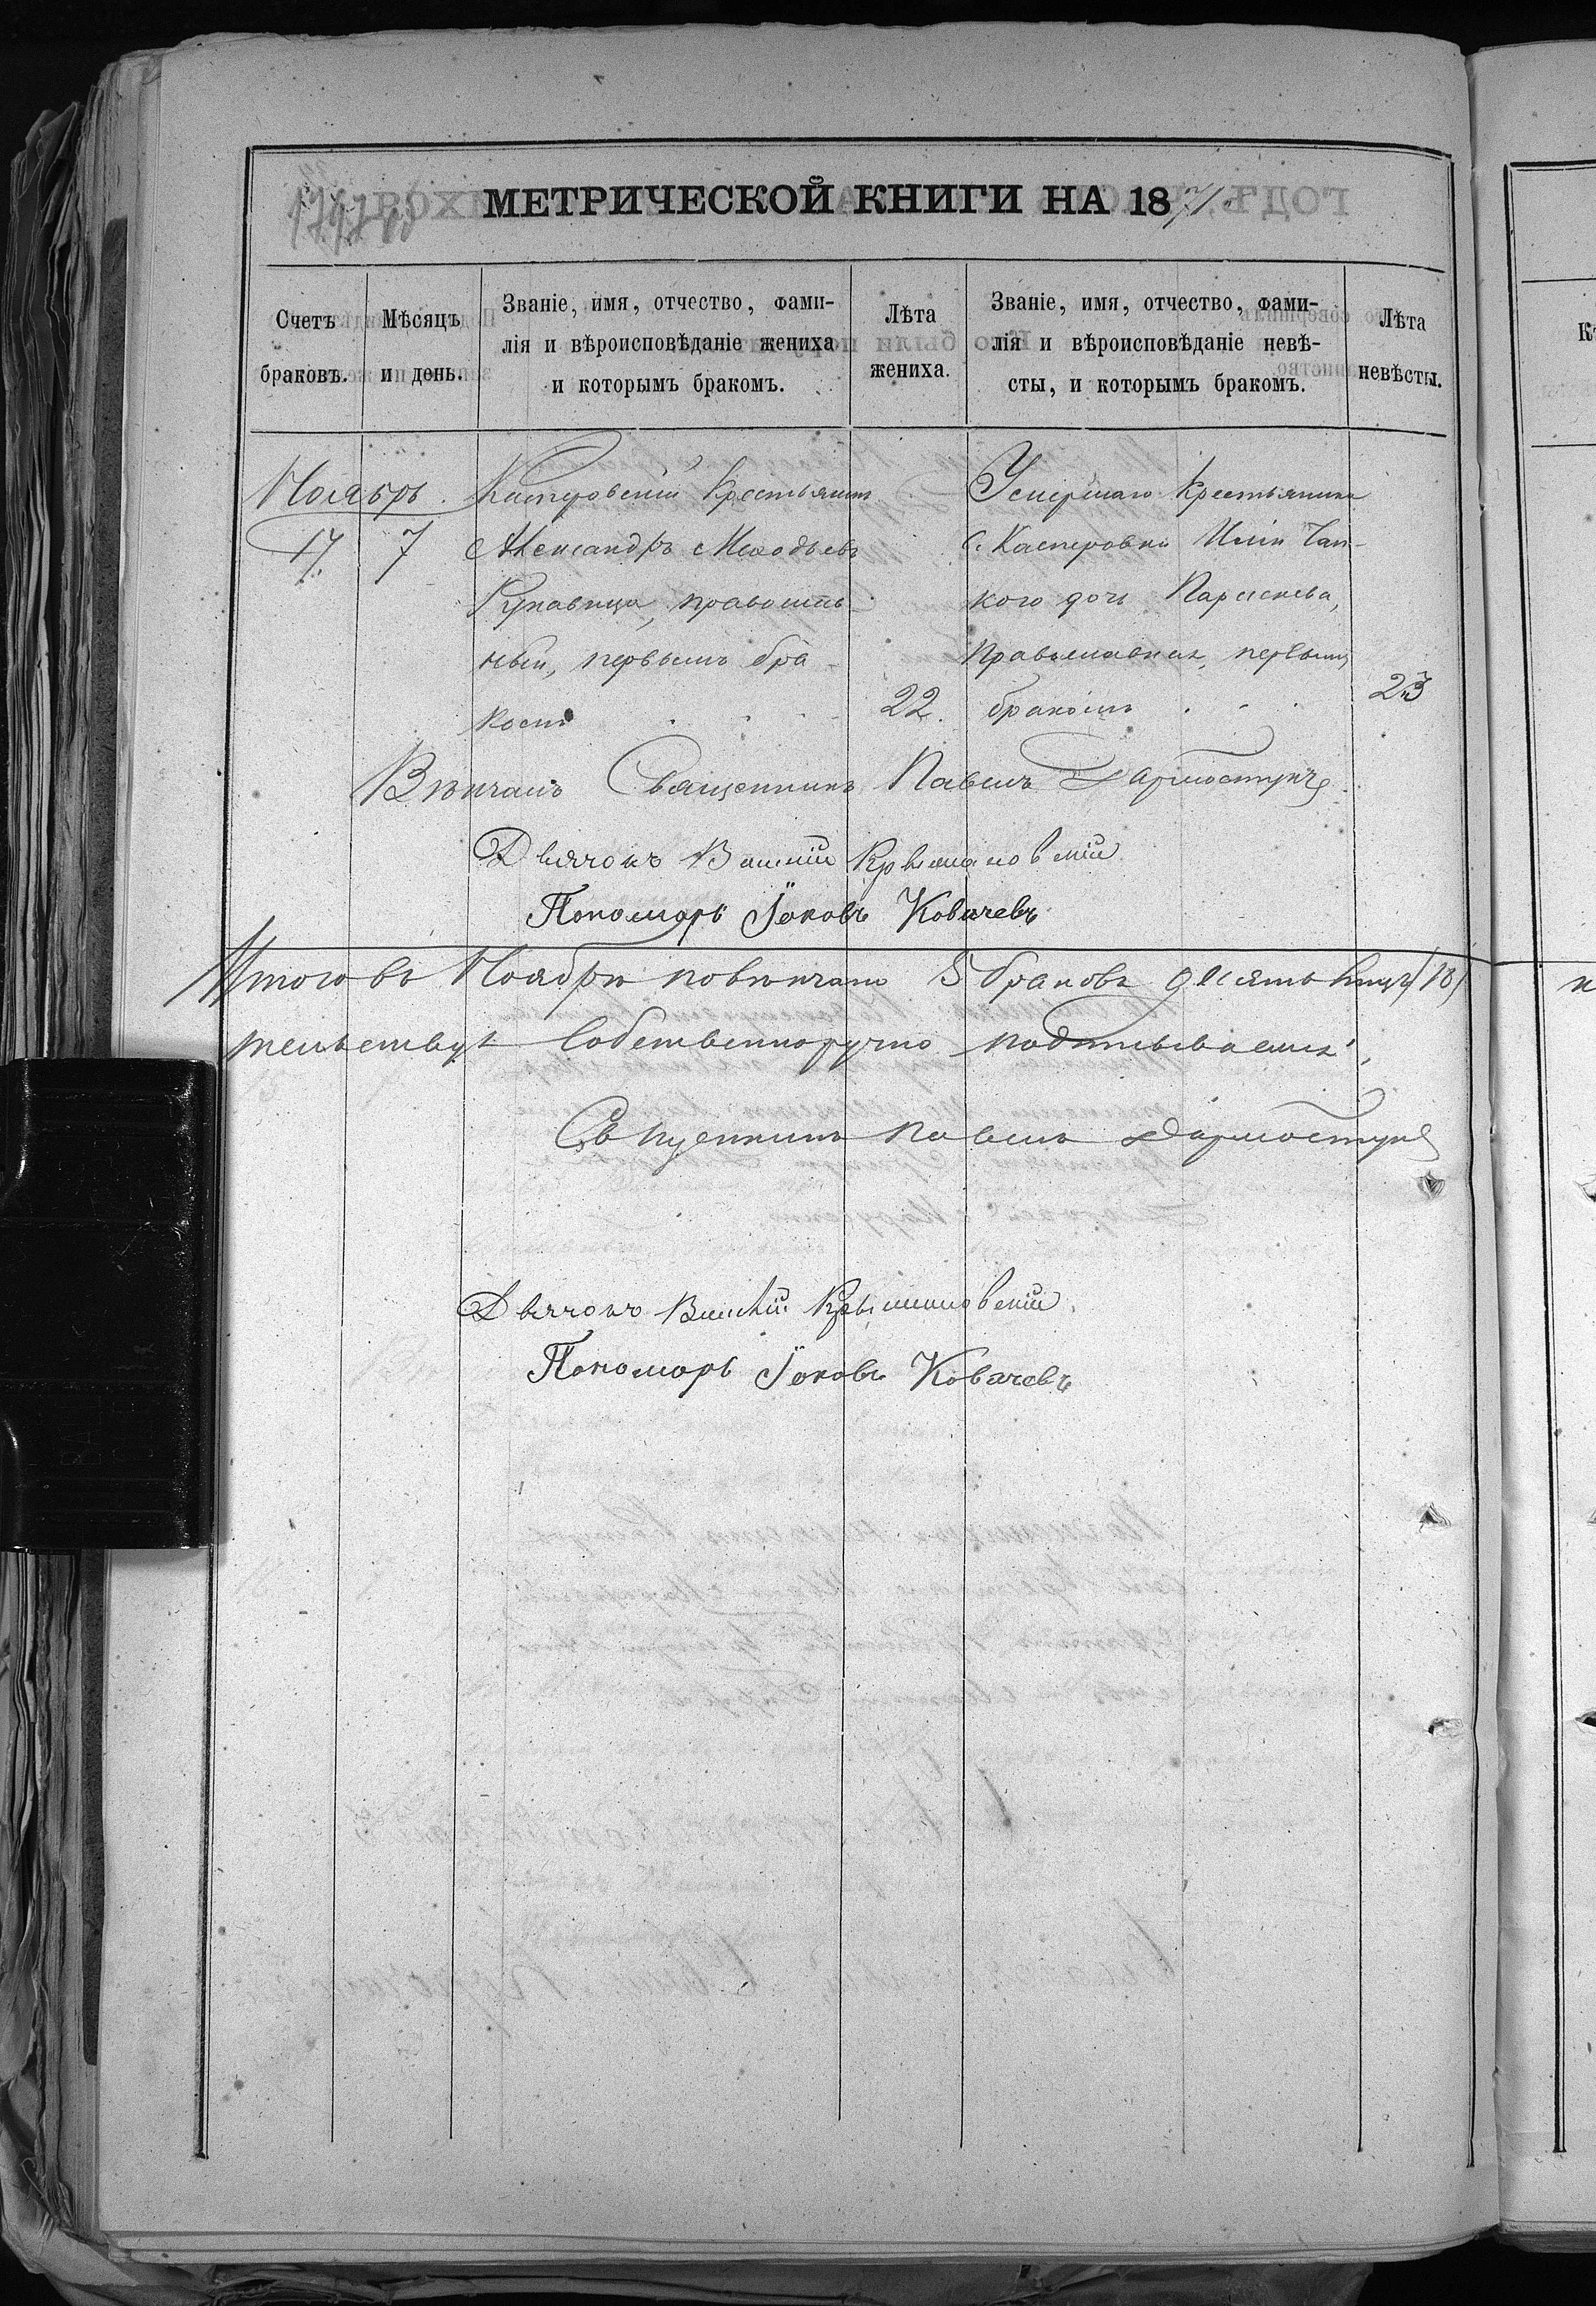 МЕТРИЧЕСКОЙ КНИГИ НА 1871
Счетъ браковъ.
Мѣсяцъ и день.
Званіе, имя, отчество, фами-
лія и вѣроисповѣданіе жениха
и которымъ бракомъ.
Лѣта жениха.
Званіе, имя, отчество, фами-
лія и вѣроисповѣданіе невѣ-
сты, и которымъ бракомъ.
Лѣта невѣсты.
Ноябрь.
17. 7
Касперовскій Крестьянинъ
Александръ Меѳодьевъ
Рукавица, православ-
ный, первымъ бра-
комъ
22.
Умершаго Крестьянина
с. Касперовки Иліи
кого дочь Параскева,
православная, первымъ
бракомъ
23
Вѣнчалъ Священникъ Павелъ Дармостукъ
Дьячокъ Василій Крыжановскій
Пономарь Іоковъ Ковачевъ
Итого въ Ноябрѣ повѣнчано 5 браковъ
тельствуя Собственноручно подписываемся,
Священникъ Павелъ Дармостукъ
Дьячокъ Василій Крыжановскій
Пономарь Іоковъ Ковачевъ